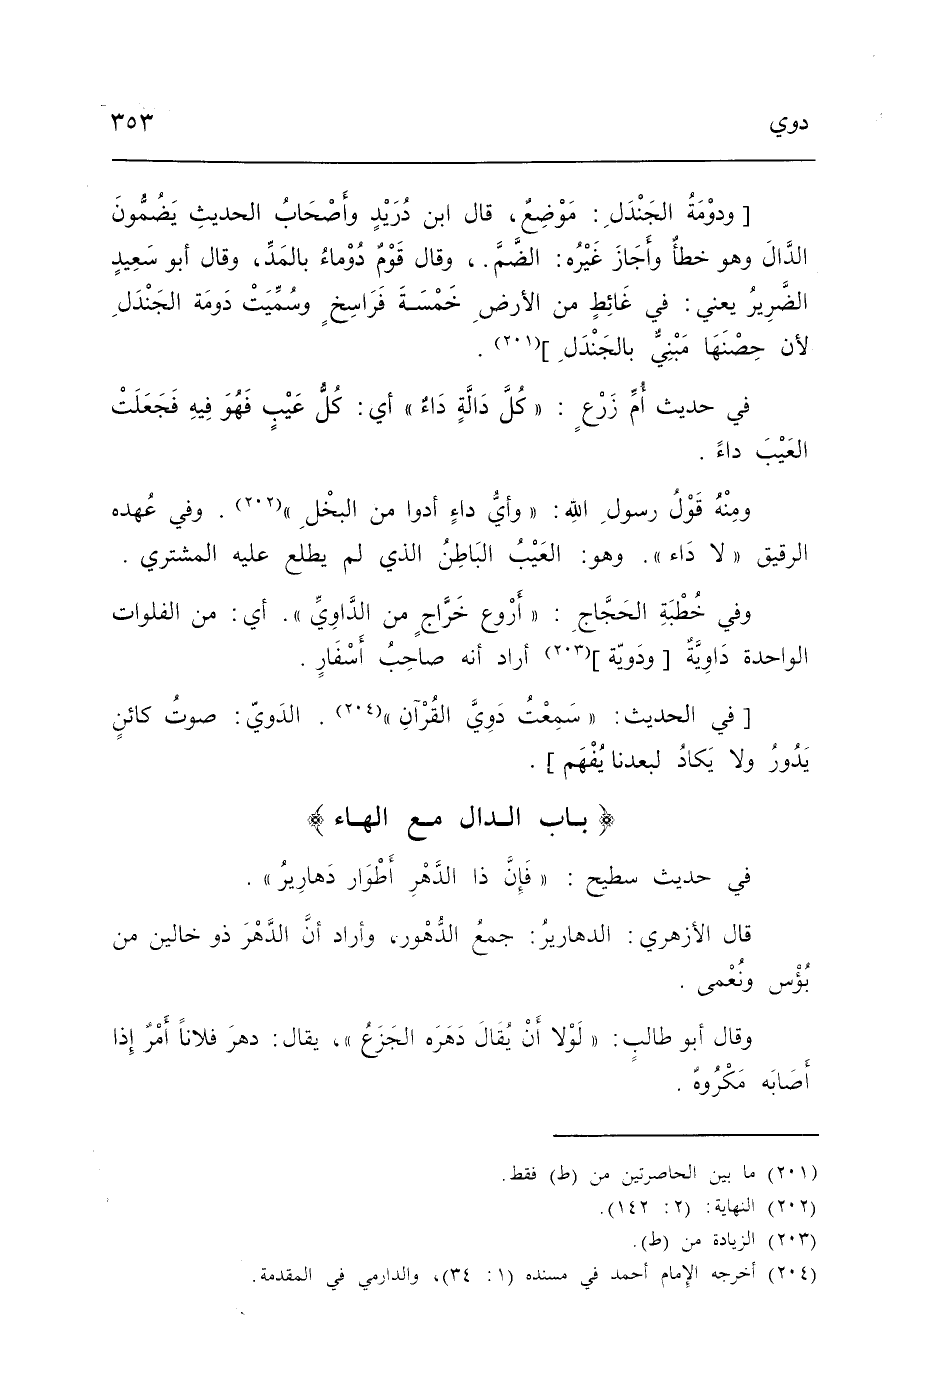 دوي ٣٥٣
[ ودوْمَةُ الجَنْدَلِ : مَوْضِعٌ ، قال ابن دُرَيْدٍ وأَصْحَابُ الحديثِ يَضُمُّونَ
الدَّالَ وهو خطأٌ وأَجَازَ غَيْرُه : الضَّمَّ . ، وقال قَوْمٌ دُوْماءُ بالمَدِّ ، وقال أبو سَعِيدٍ
الضَّرِيرُ يعني : في غَائِطٍ من الأرضِ خَمْسَةَ فَرَاسِخٍ وسُمِّيَتْ دَومَة الجَنْدَلِ
لأن حِصْنَهَا مَبْنِيٌّ بالجَنْدَلِ ](٢٠١) .
في حديث أُمِّ زَرْعٍ : « كُلَّ دَالَّةٍ دَاءٌ » أي : كُلُّ عَيْبٍ فَهُوَ فِيهِ فَجَعَلَتْ
العَيْبَ داءً .
ومِنْهُ قَوْلُ رسولِ الله : « وأيُّ داءٍ أدوا من البخْلِ »(٢٠٢) . وفي عُهده
الرقيق « لا دَاء » . وهو : العَيْبُ البَاطِنُ الذي لم يطلع عليه المشتري .
وفي خُطْبَةِ الحَجَّاجِ : « أَرْوع خَرَّاجٍ من الدَّاوِيِّ » . أي : من الفلوات
الواحدة دَاوِيَّةٌ [ ودَويّة ](٢٠٣) أراد أنه صاحِبُ أَسْفَارٍ .
[ في الحديث : « سَمِعْتُ دَوِيَّ القُرْآنِ »(٢٠٤) . الدَويّ : صوتُ كائنٍ
يَدُورُ ولا يَكادُ لبعدنا يُفْهَم ] .
﴿ بـاب الـدال مـع الهـاء ﴾
في حديث سطيح : « فَإِنَّ ذا الدَّهْرِ أَطْوَار دَهارِيرُ » .
قال الأزهري : الدهاريرُ : جمعُ الدُّهْور ، وأراد أنَّ الدَّهْرَ ذو خالين من
بُؤْس ونُعْمى .
وقال أبو طالبٍ : « لَوْلا أَنْ يُقَالَ دَهَرَه الجَزَعُ » ، يقال : دهرَ فلاناً أَمْرٌ إذا
أَصَابَه مَكْرُوهٌ .
(٢٠١) ما بين الحاصرتين من (ط) فقط .
(٢٠٢) النهاية : (٢ : ١٤٢) .
(٢٠٣) الزيادة من (ط) .
(٢٠٤) أخرجه الإمام أحمد في مسنده (١ : ٣٤) ، والدارمي في المقدمة .